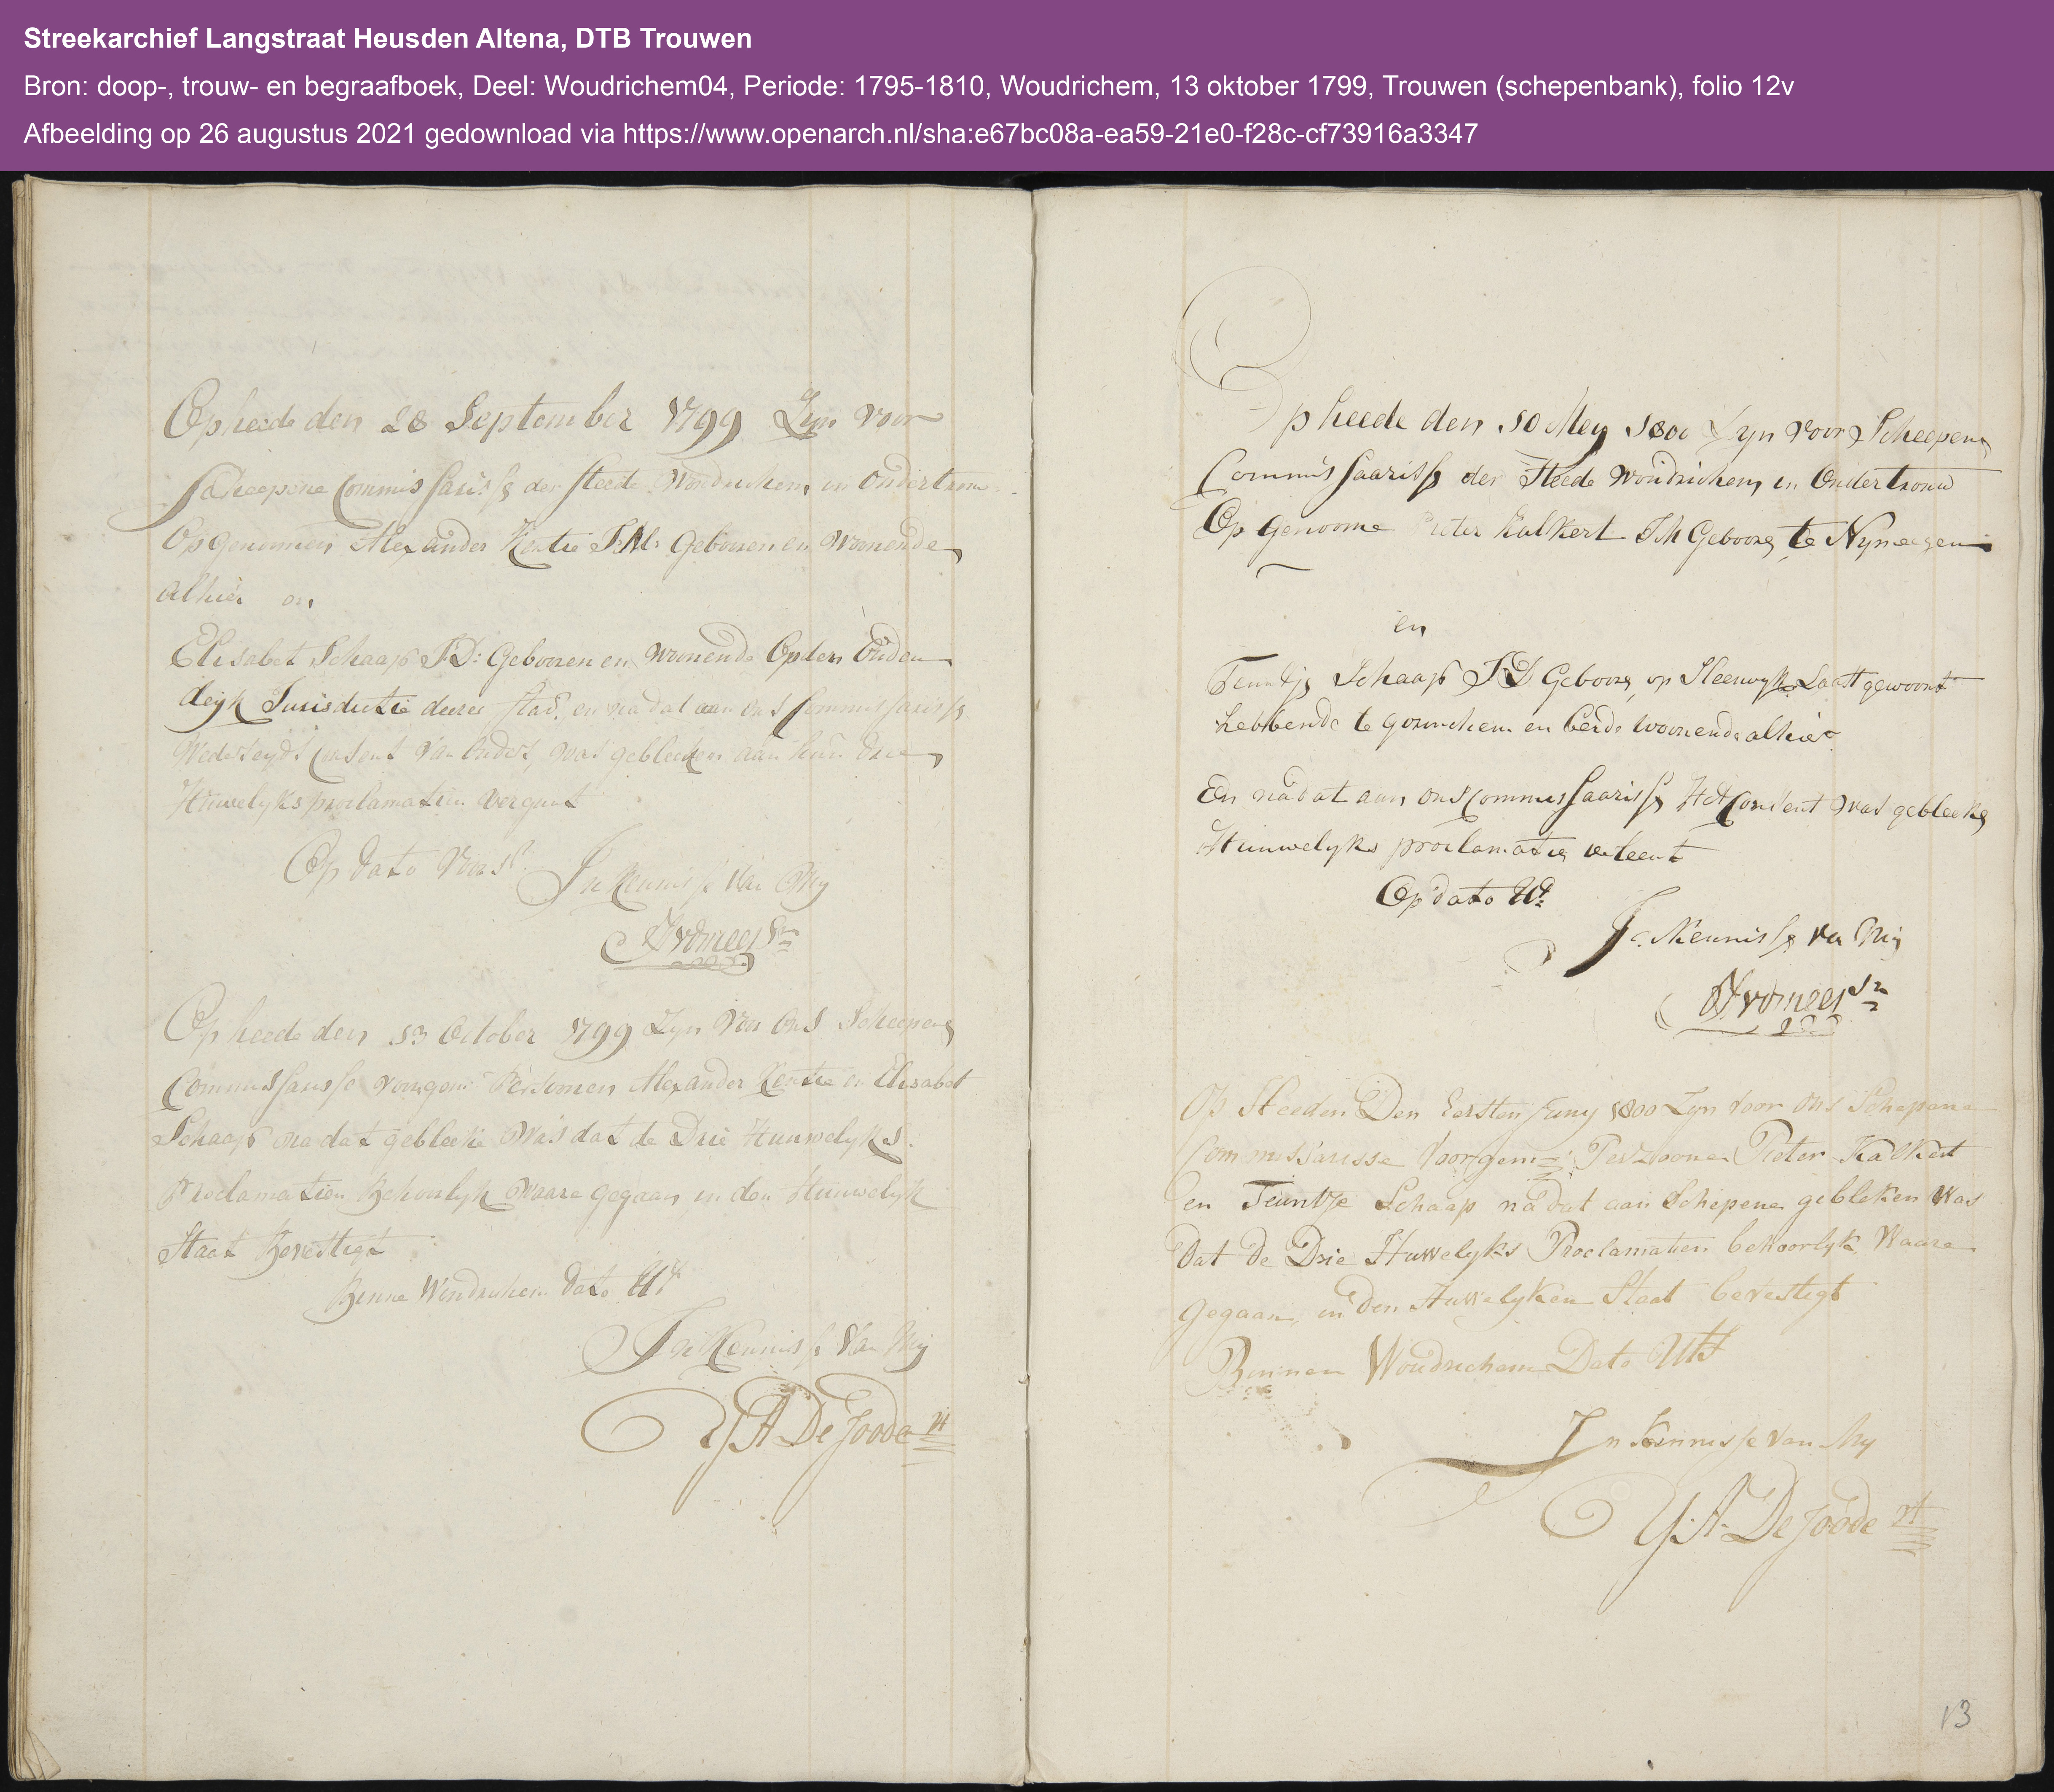 Streekarchief Langstraat Heusden Altena, DTB Trouwen
Bron: doop-, trouw- en begraafboek, Deel: Woudrichem04, Periode: 1795-1810, Woudrichem, 13 oktober 1799, Trouwen (schepenbank), folio 12v
Afbeelding op 26 augustus 2021 gedownload via https://www.openarch.nl/sha:e67bc08a-ea59-21e0-f28c-cf73916a3347
Op heede den 28 September 1799 Zyn voor
Scheepene Commissarisse der steede Woudrichem in ondertrouw
Op genomen Alexander Kentie J:M: Gebooren en Woonende
alhier en
Elisabet Schaap J:D: Gebooren en woonende Op den Ouden
deyk Jurisdictie deeser stad, en na dat aan ons Commissarisse
Wederseyds Consent van Ouders, was gebleeken aan hun drie
Huwelyks proclamatien vergunt
Op dato voors.
In Kennisse van My
Op heede den 13 October 1799 Zyn voor ons Scheepens
Commissarisse voorgem: Persoonen Alexander Kentie en Elisabet
Schaap na dat gebleeke was dat de Drie Huuwelyks
Proclamatien Behoorlyk waare gegaan in den Huuwelyk
Staat Bevestigt
Binne Woudrichem dato Ut
In Kennisse van My
A De Joode
Op heede den 10 Mey 1800 Zyn voor Scheepens
Commissaarisse der Steede Woudrichem in Ondertrouw
Op Genoome Pieter Kalkert J M Geboore te Nymeegen
en
Teuntje Schaap J D Geboore op Sleeuwyk Laast gewoont
hebbende te gorinchem en beide woonende alhier
En nadat aan ons Commissaarisse Het Consent was gebleeke
Huuwelyks proclamatie verleent
Op dato Ut
In Kennisse van My
Op Heeden Den Eersten Juny 1800 Zyn voor ons Schepene
Commissarisse Voorgem: Perzoonen Pieter Kalkert
en Teuntje Schaap na dat aan Schepene gebleken was
dat de Drie Huwelyks Proclamatien behoorlyk Waare
Gegaan, in den Huwelyken Staat bevestigt
Binnen Woudrichem Dato Uts
In Kennisse van My
A. De Joode
13